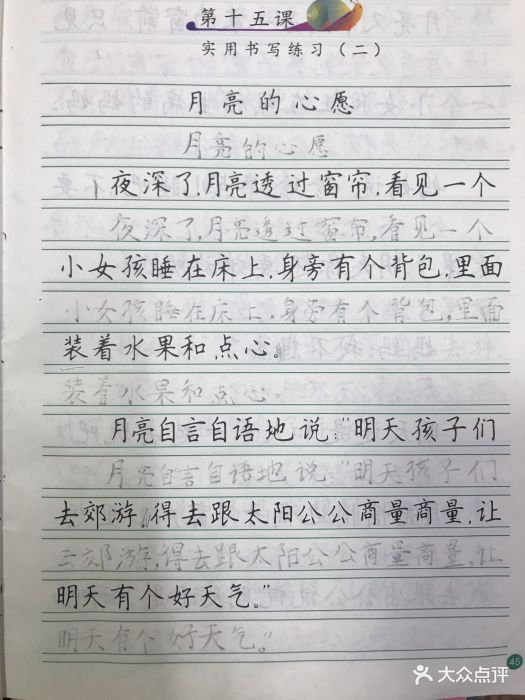 第十五课
实用书写练习(二)
月亮的心愿
月亮的心愿
夜深了,月亮透过窗帘,看见一个
夜深了,月亮透过窗帘,看见一个
小女孩睡在床上,身旁有个背包,里面
小女孩睡在床上,身旁有个背包,里面
装着水果和点心。
装着水果和点心。
月亮自言自语地说:“明天孩子们
月亮自言自语地说:“明天孩子们
去郊游,得去跟太阳公公商量商量,让
去郊游,得去跟太阳公公商量商量,让
明天有个好天气。”
明天有个好天气。”
45
大众点评